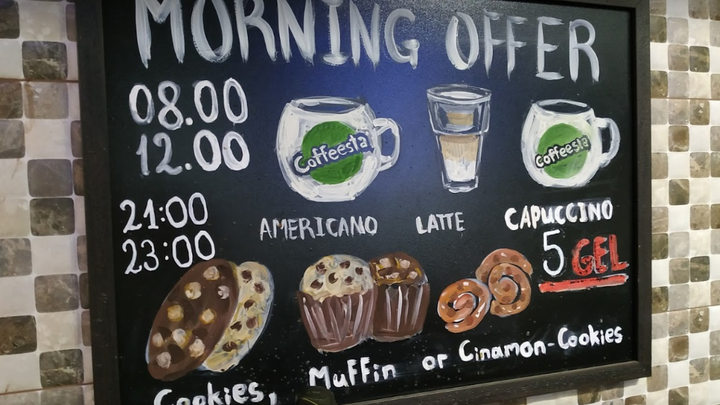 MORNING OFFER
08.00
12.00
21:00
23:00
Coffeesta
Coffeesta
AMERICANO
LATTE
CAPUCCINO
5 GEL
Cookies, Muffin or Cinamon-Cookies